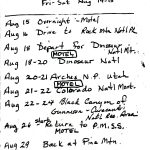 Fri-Sat Aug
Aug 15 Overnight - Motel
Aug 16 Drive to Rock Mtn Natl Pk.
Aug 18 Depart for Dinosaur
MOTEL Natl Mt.
Aug 18-20 Dinosaur Natl
MOTEL
Aug 20-21 Arches N.P. Utah
MOTEL
Aug 21-22 Colorado Natl Mont.
Aug 22-24 Black Canyon of
Gunnison -
Natl Rec Area
Aug 26 start Return to P.M.S.S,
MOTEL
Aug 29 Back at Pine Mtn.